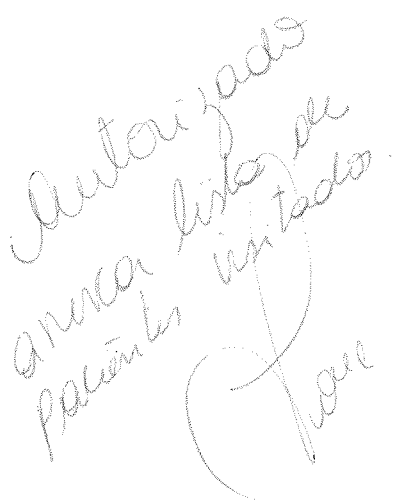 Autorizado
anexar lista de
pacientes visitado